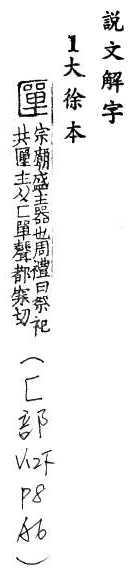 說文解字
1大徐本
匰
宗廟盛主器也周禮曰祭祀
共匰主从匚單聲都寒切
（匚部V12下P8A6）